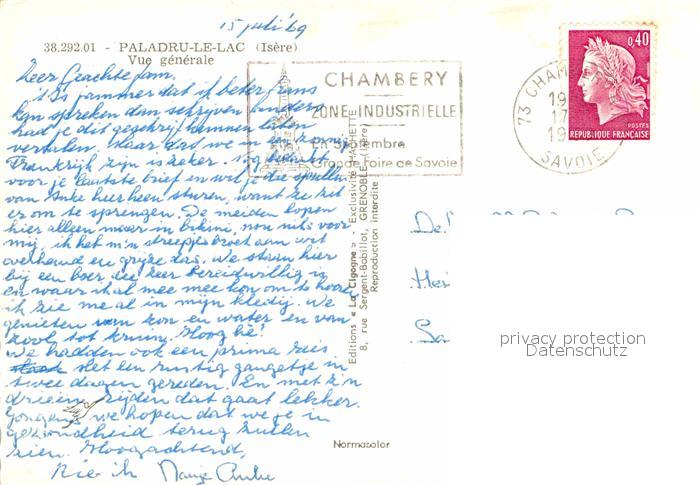 15 juli '69
38.292.01 - PALADRU-LE-LAC (Isère)
Vue générale
Zeer Geachte fam.
't Is jammer dat ik beter frans
kan spreken dan schrijven anders
had je dit geschrijf kunnen laten
vertalen. Maar dat we in
Frankrijk zijn is zeker.
voor je laatste brief en wil je de spullen
van Anke heen sturen, want ze zit
er om te springen. De meiden lopen
hier alleen maar in bikini, non niks voor
mij, ik heb m'n streepjesbroek aan wit
overhemd en grijze das. We staan hier
bij een boer die zeer bereidwillig is
en waar ik al mee mee kon om te hooien
ik zie me al in mijn kledij. We
genieten van zon en water en van
kool tot kruin. Hoog hè!
We hadden ook een prima reis
met een rustig gangetje in
twee dagen gereden. En met z'n
drieën rijden dat gaat lekker.
Jongens we hopen dat we je in
gezondheid terug zullen
zien. Hoogachtend,
Rie
CHAMBERY
ZONE INDUSTRIELLE
En Septembre
Grande Foire de Savoie
73 CHAM
19
17
19
SAVOIE
0,40
POSTES
REPUBLIQUE FRANÇAISE
Editions « La Cigogne » - Exclusivité HACHETTE
8, rue Sergent-Bobillot, GRENOBLE (Isère)
Reproduction interdite
Normacolor
privacy protection
Datenschutz